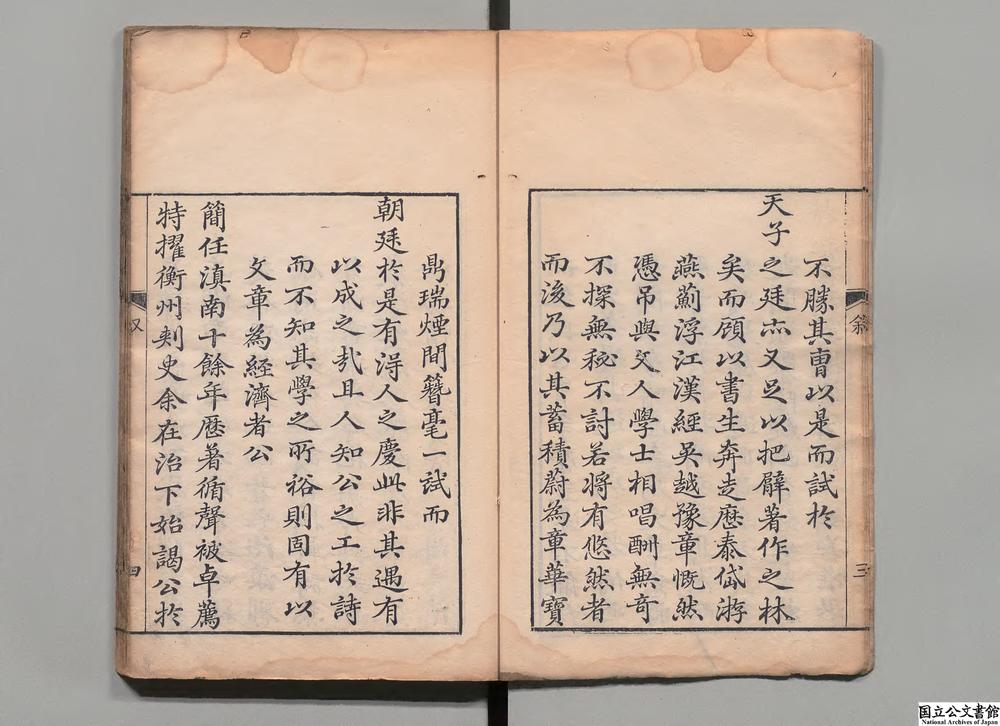 不勝其曹以是而試於
天子之廷亦又足以把臂著作之林
矣而顧以書生奔走歷泰岱游
燕薊浮江漢經吳越豫章慨然
憑吊與文人學士相唱酬無奇
不探無秘不討若將有悠然者
而後乃以其蓄積蔚為章華寶
叙
三
鼎瑞煙間簪毫一試而
朝廷於是有得人之慶此非其遇有
以成之哉且人知公之工於詩
而不知其學之所裕則固有以
文章為經濟者公
簡任滇南十餘年歷著循聲被卓薦
特擢衡州刺史余在治下始謁公於
四
国立公文書館
National Archives of Japan